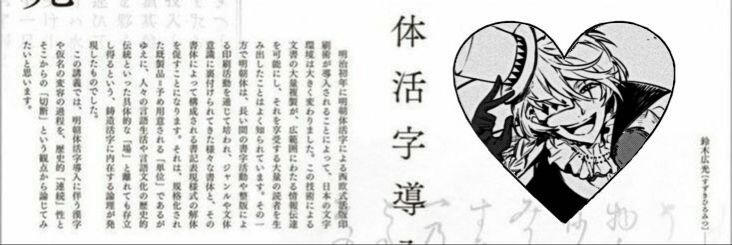 鈴木広光[すずきひろみつ]
体活字導
明治初年に明朝体活字による西欧式活版印
刷術が導入されることによって、日本の文字
環境は大きく変わりました。この技術による
文書の大量複製が、広範囲にわたる情報伝達
を可能にし、それを享受する大量の読者を生
み出したことはよく知られています。その一
方で明朝体は、長い間の書字活動や整版によ
る印刷活動を通じて培われ、ジャンルや文体
意識に裏付けられてきた様々な書体と、その
書体によって構成される書記表現様式の解体
を促すことになります。それは、規格化され
た既製品=予め用意される「単位」であるが
ゆえに、人々の言語生活や言語文化の歴史的
伝統といった具体的な「場」と離れても存立
し得るという、鋳造活字に内在する論理が発
現したものでした。
この講義では、明朝体活字導入に伴う漢字
や仮名の変容の過程を、歴史的「連続」性と
そこからの「切断」という観点から論じてみ
たいと思います。